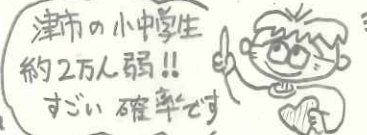 津市の小中学生
約2万人弱!!
すごい確率です